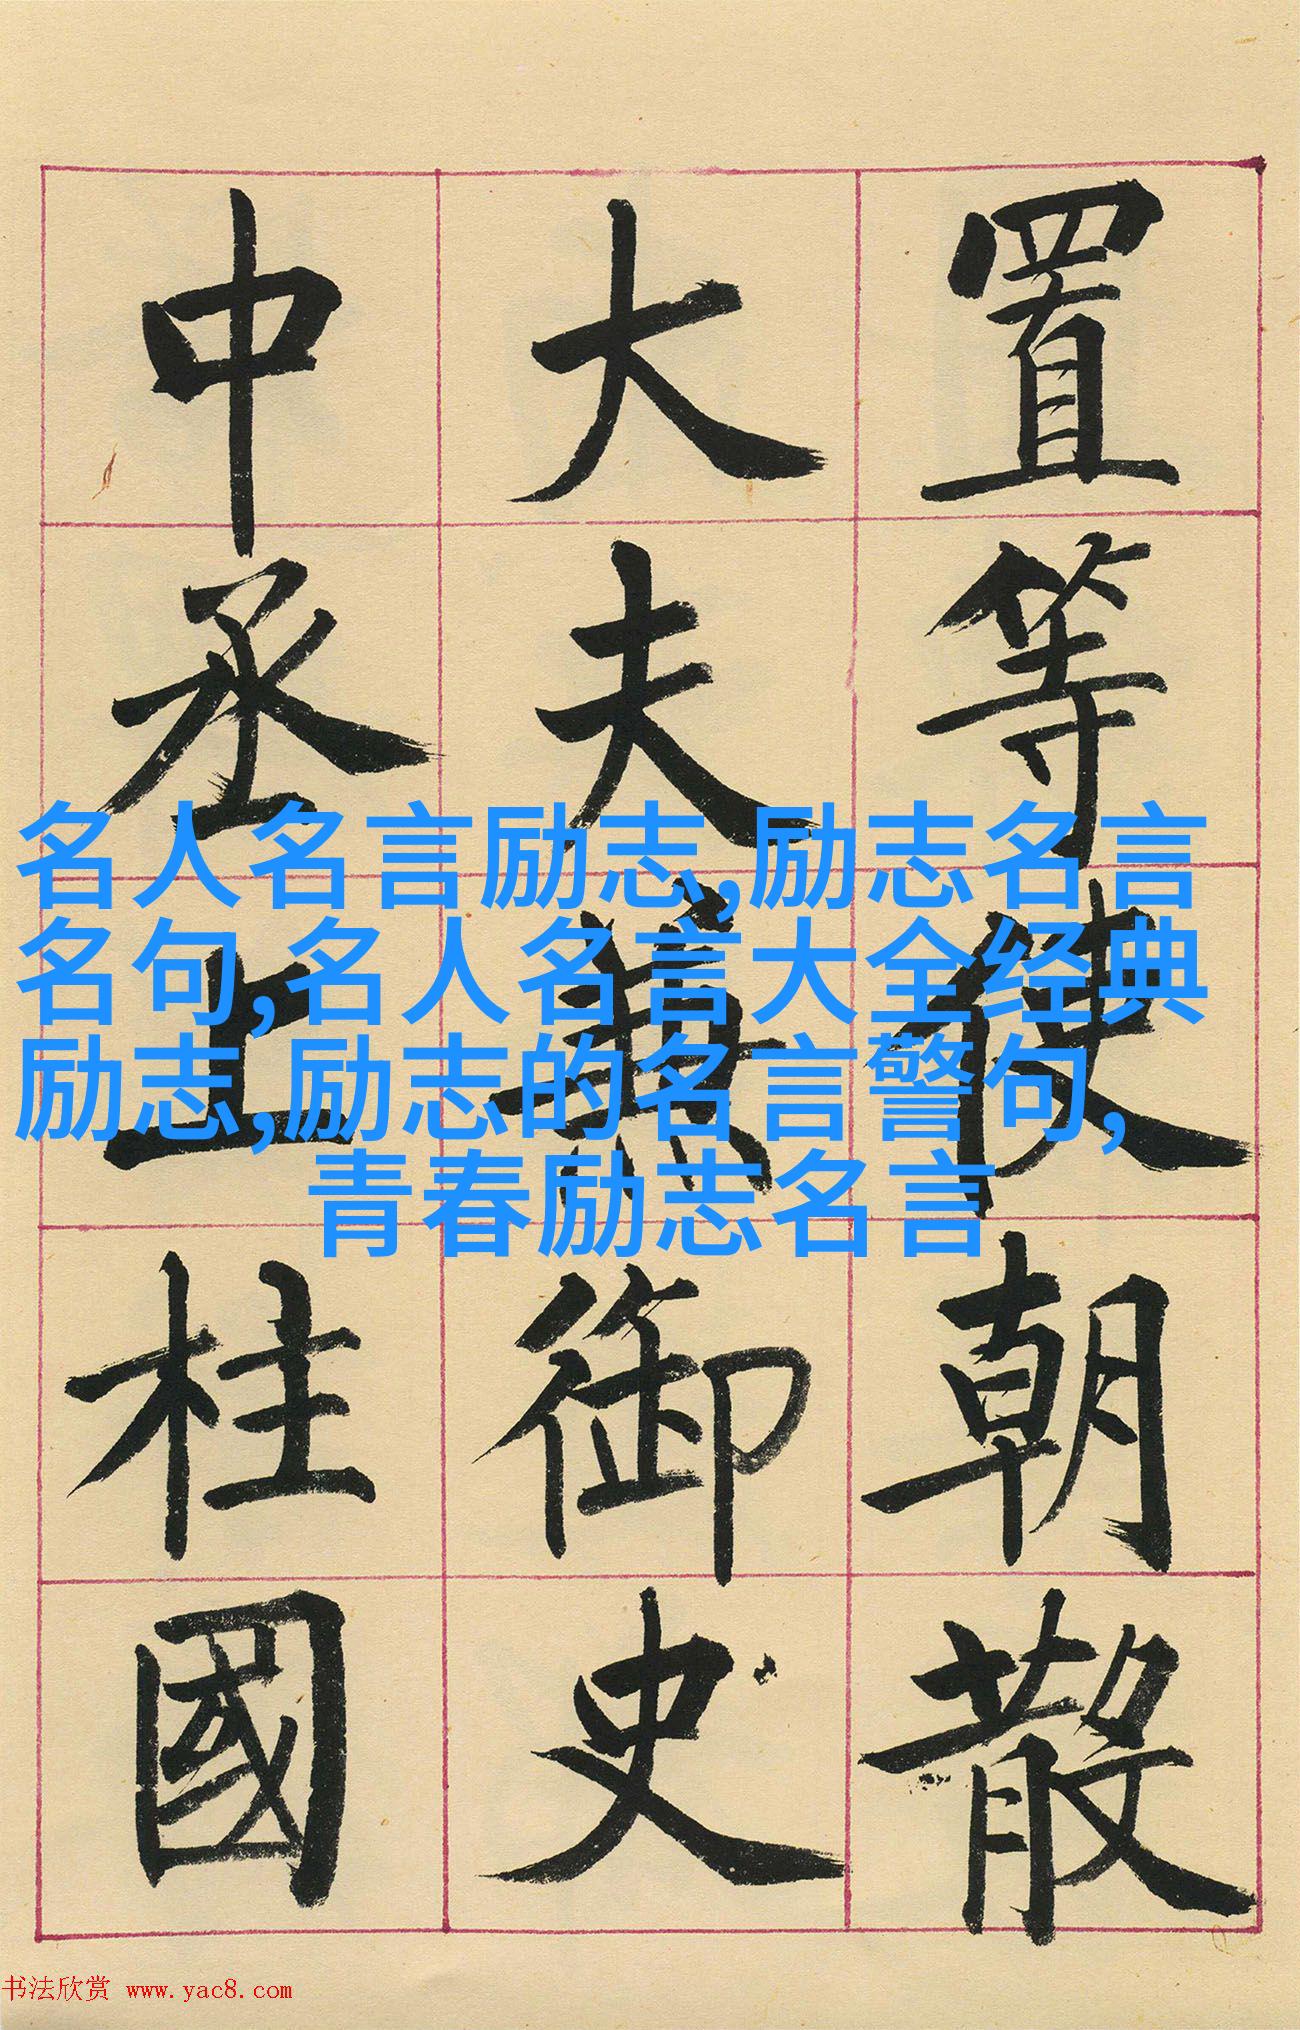 置等使朝散
大夫兼御史
中丞上柱國
名人名言励志,励志名言
名句,名人名言大全经典
励志,励志的名言警句,
青春励志名言
书法欣赏 www.yac8.com